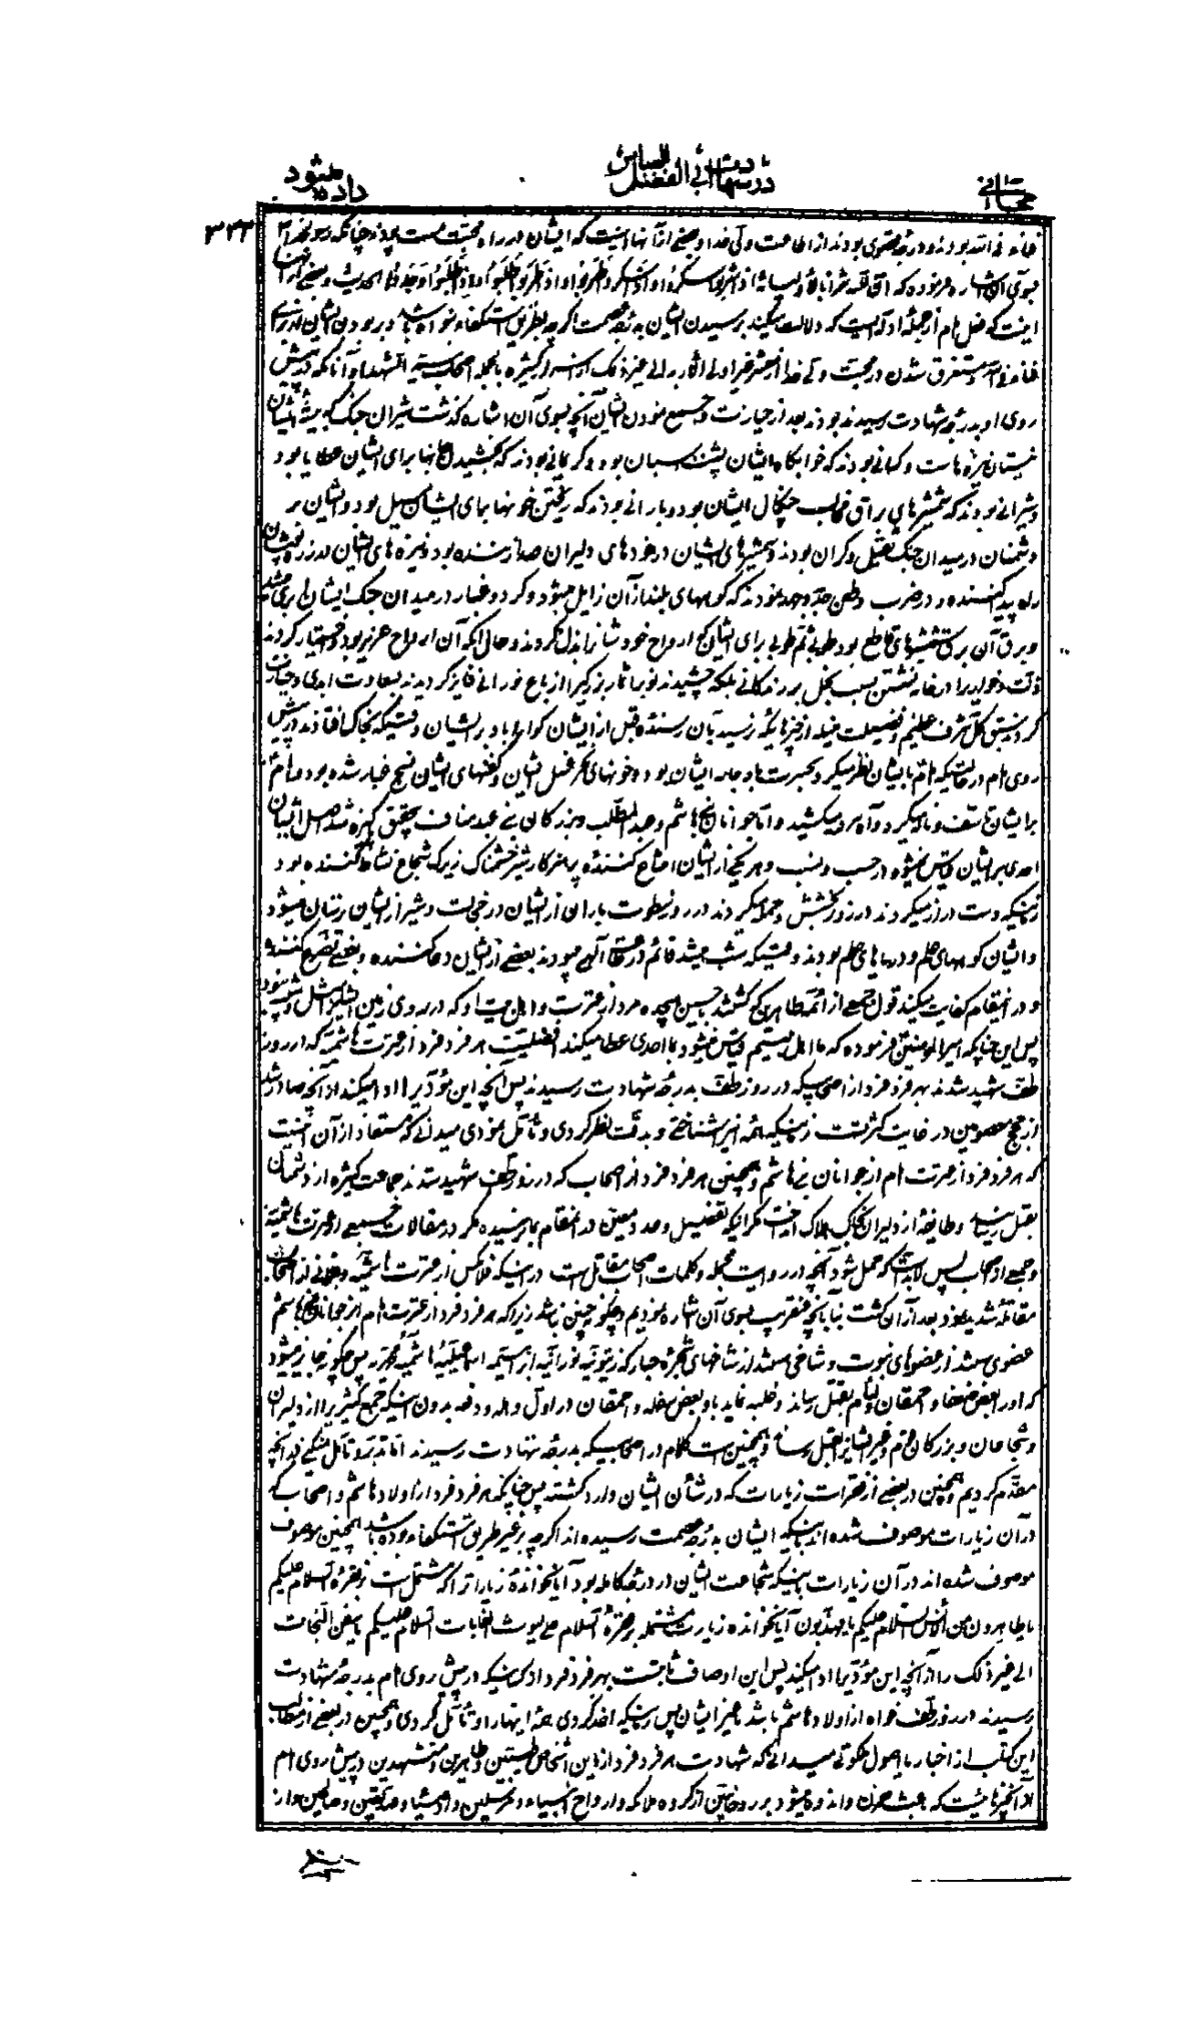 در شهادت أبي الفضل العباس
داده میشود
۳۲۳
فناء فی الله بودند و در درجه قصوی بودند از اطاعت ولی خدا و بعضی از آنها اینست که ایشان در راه محبت مست بودند چنانکه
بسوی آن اشاره فرموده که ان لله شرابا لأوليائه اذا شربوا سكروا و اذا سكروا طربوا و اذا طربوا طلبوا و اذا طلبوا وجدوا الحدیث و بعضی از آنها
اینست که فعل امام از جمله ادله ایست که دلالت میکند برسیدن ایشان به رتبه عصمت اگرچه بطریق استکفاء نبوده باشد و بر بودن ایشان
فناء فی الله و مستغرق شدن در محبت ولی خدا از الی غیر ذلک از اسرار کثیره بالجمله اصحاب سید الشهداء و آنانکه در پیش
روی او بدرجه شهادت رسیدند بودند بعد از حیازت و جمیع نمودن ایشان آنچه بسوی آن اشاره گذشت شیران جنگ که بیشه ایشان
نیستان نیزه هاست و کسانی بودند که خوابگاه ایشان پشت اسبان بود و کریمانی بودند که بخشیدن جانها برای ایشان عطایا بود
و شیرانی بودند که شمشیرهای براق مخالب چنگال ایشان بود و بارانی بودند که ریختن خونها بجای ایشان سیل بود و ایشان بر
دشمنان در میدان جنگ ثقیل و گران بودند و شمشیرهای ایشان در خودهای دلیران صدا زننده بود و نیزه های ایشان
راه پیدا کننده و در ضرب و طعن جد و جهد نمودند که کوههای بلند از آن زایل میشود و گرد و غبار در میدان جنگ ایشان ابری میشد
و برق آن برق شمشیرهای قاطع بود طوبی ثم طوبی برای ایشان که ارواح خودشان را بذل کردند و حال آنکه آن ارواح عزیز بود و اختیار نکردند
ذلت و خواری را در خانه نشستن بسبب بخل بر زندگانی بلکه چشیدند نوبر اثمار بزرگی را از باغ نورانی فایز گردیدند بسعادت ابدی و حیازت
کردند سبق کل شرف عظیم و فضیلت جلیله از چیزهائیکه نرسید بآن رسنده قبل از ایشان گوارا باد بر ایشان وقتیکه بخاک افتادند در پیش
روی امام در حالتیکه امام بایشان نظر میکرد بحسرت باد جامه ایشان بود و خونهای نحر غسل ایشان و کفنهای ایشان نسج غبار شده بود و امام
بر ایشان تاسف و ناله میکرد و آه سرد میکشید و اما جوانان بنی هاشم و عبد المطلب و بزرگان بنی عبد مناف بتحقیق که پاکیزه شد اصل ایشان
احدی بر ایشان قیاس نمیشود در حسب و نسب و هر یکی از ایشان امتناع کننده پر هنر کار شیر خشمناک زیرک شجاع نشاط کننده بود
زمانیکه دست دراز میکردند در روز بخشش و حمله میکردند در روز سطوت باران از ایشان در خجلت و شیر از ایشان ترسان میشود
و ایشان کوههای حلم و دریاهای علم بودند وقتیکه شب میشد قائم در طاعت الهی میبودند بعضی از ایشان دعا کننده و بعضی تضرع کننده
و در اینمقام کفایت میکند قول جمعی از ائمه طاهرین که کشتند با حسین هیجده مرد از عترت و اهل بیت او که در روی زمین ایشان را مثل و شبیه نبود
پس این چنانکه امیرالمومنین فرموده که ما اهل بیتیم قیاس نمیشود بما احدی عطا میکند افضلیت هر فرد فرد از عترت هاشمیه که در روز
طف شهید شدند بهر فرد فرد از اصحابیکه در روز طف بدرجه شهادت رسیدند پس آنچه این مؤدی را ادا میکند از آنچه صادر شد
از حجج معصومین در غایت کثرتست زمانیکه همه را شناختی و بدقت نظر کردی و تأمل نمودی میدانی که مستفاد از آن اینست
که هر فرد فرد از عترت امام از جوانان بنی هاشم و همچنین هر فرد فرد از اصحاب که در روز طف شهید شدند جماعت کثیره از دشمنان
بقتل رسانید و طایفه از دلیران بخاک هلاک انداخت مگر اینکه تفصیل و عدد معین در اینمقام بما نرسیده مگر در مقالات جمیعی از عترت هاشمیه
و جمعی از اصحاب پس لابد است که حمل شود آنچه در روایت مجمله و کلمات اصحاب مقاتل است در اینکه فلان کس از عترت هاشمیه و فلانی از اصحاب
مقاتله شدید نمود بعد از آن کشت بنا بآنچه عنقریب بسوی آن اشاره نمودیم و چگونه چنین نباشد زیرا که هر فرد فرد از عترت امام از جوانان بنی هاشم
عضوی میباشد از عضوهای نبوت و شاخی میباشد از شاخهای شجره مبارکه زیتونیه نورانیه ابراهیمیه اسماعیلیه هاشمیه محمدیه پس چگونه جایز میشود
که او را بعض ضعفا و احمقان و لئام بقتل رساند و غلبه نماید باو بعض سفله و احمقان در اول وهله و دفعه بدون اینکه جمع کثیری را از دلیران
و شجاعان و بزرگان قوم و غیر ایشان را بقتل رساند و همچنین است کلام در اصحابیکه بدرجه شهادت رسیدند اما تدبر و تأمل نمیکنی در آنچه
مقدم کردیم و همچنین در بعضی از فقرات زیارات که در شأن ایشان وارد گشته پس چنانکه هر فرد فرد از اولاد هاشم و اصحاب که
در آن زیارات موصوف شده اند باینکه ایشان بدرجه عصمت رسیده اند اگرچه بر غیر طریق استکفاء بوده باشد همچنین موصوف
موصوف شده اند در آن زیارات باینکه شجاعت ایشان در درجه کامله بود آیا نخوانده زیارتی را که مشتمل است بر فقره السلام علیکم
یا طاهرون من الأدناس السلام علیکم یا مهذبون آیا نخوانده زیارت مشتمله بر فقره السلام علی لیوث الغابات السلام علیکم یا سفن النجات
الی غیر ذلک را از آنچه این مؤدی را ادا میکند پس این اوصاف ثابتست بهر فرد فرد از کسانیکه در پیش روی امام بدرجه شهادت
رسیدند در روز طف خواه از اولاد هاشم باشد یا غیر ایشان پس زمانیکه اخذ کردی همه اینها را و تأمل کردی و همچنین در بعضی از مطالب
این کتاب از اخبار یا اصول ملکوتی میدانی که شهادت هر فرد فرد از این اشخاص طیبین و طاهرین و مستشهدین در پیش روی امام
از آنچیزهائیست که باعث حزن و اندوه میشود بر روحانیین از گروه ملائکه و ارواح انبیاء و مرسلین و اوصیاء و صدیقین و صالحین و از